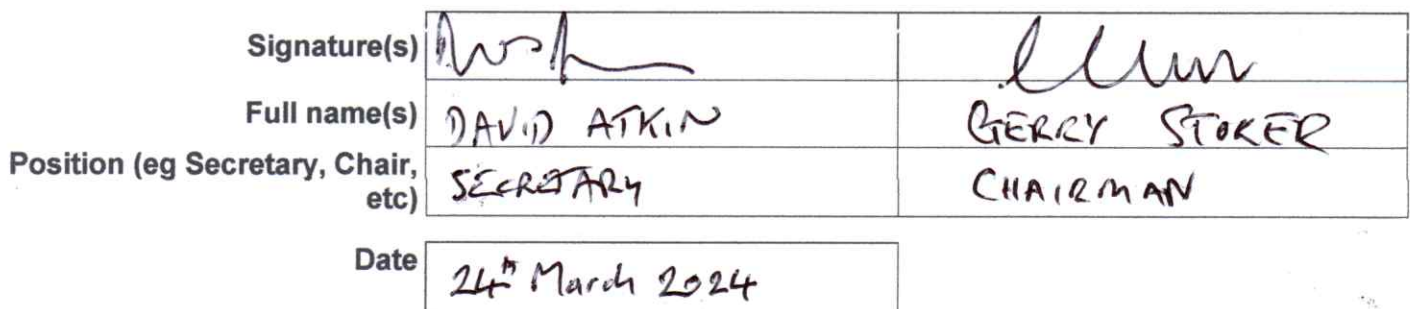 Signature(s)
Full name(s) DAVID ATKIN GERRY STOKER
Position (eg Secretary, Chair,
etc) SECRETARY CHAIRMAN
Date 24th March 2024